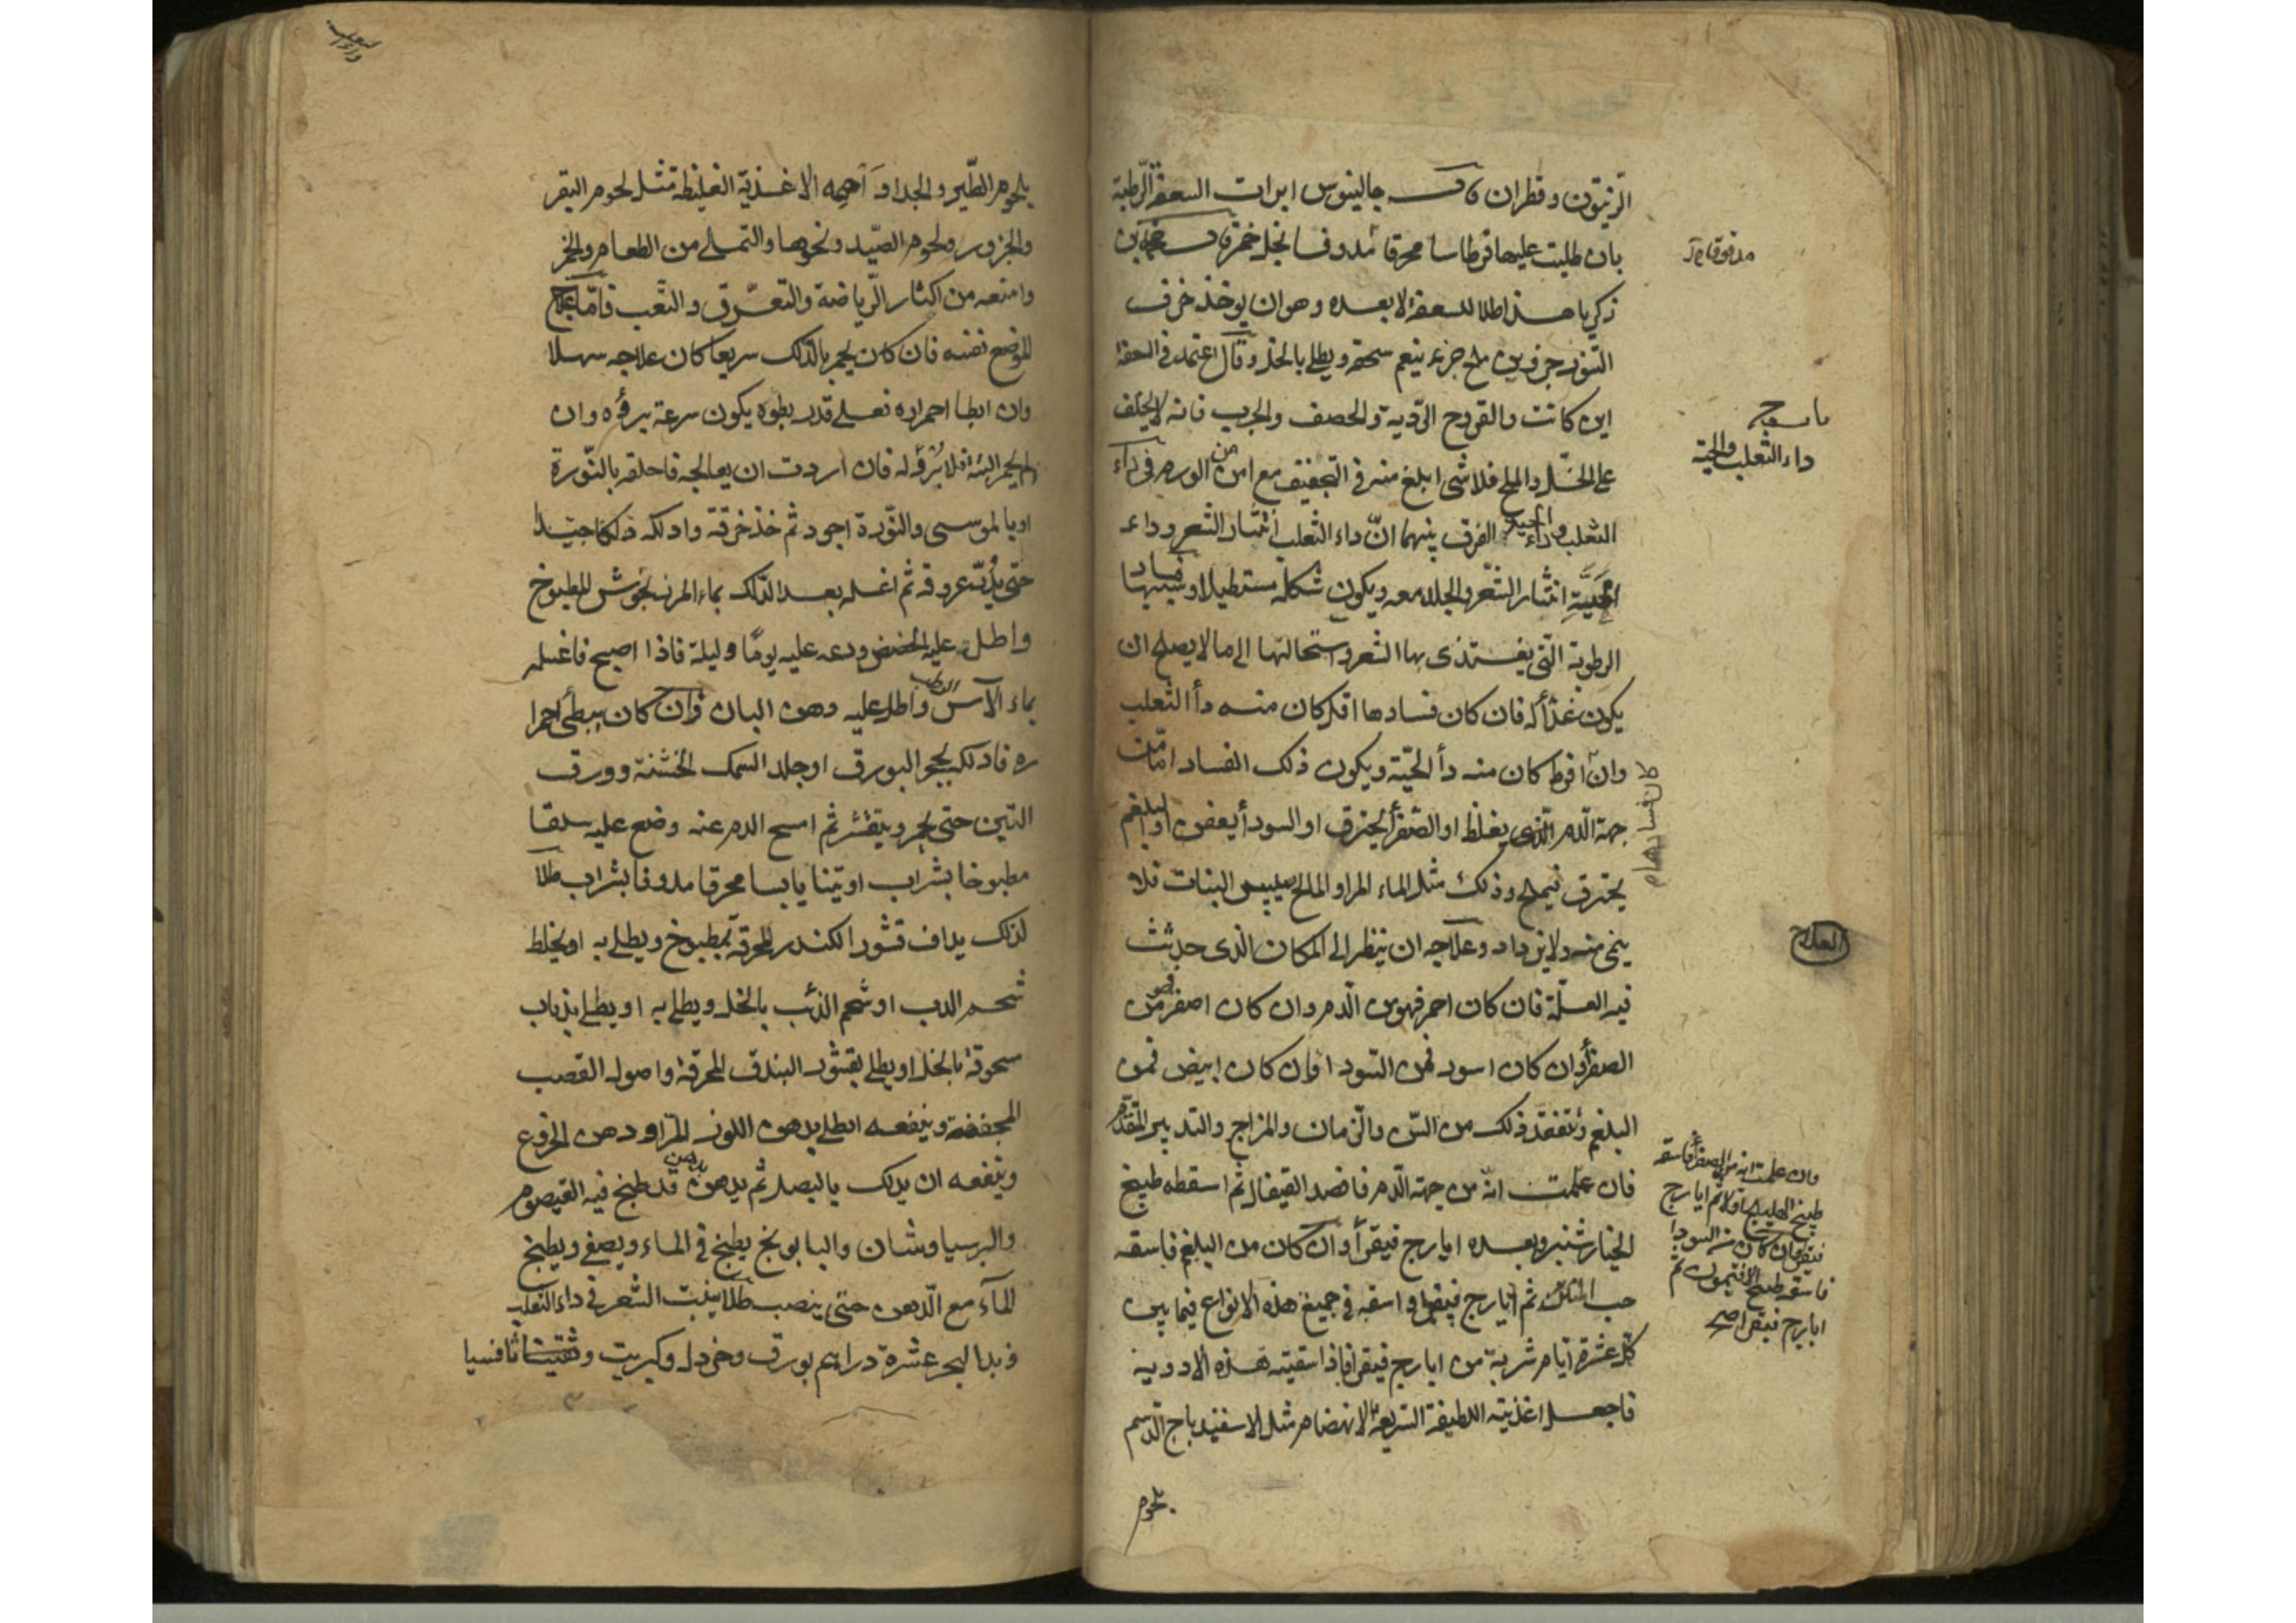 الزيتون وقطران قال جالينوس ابرات السعفة الرطبة
بان طليت عليها قرطاسا محرقا مدوفا بخل خمر قال محمد بن
مدقوقا
ذكريا هذا طلا للسعفة لا بعده وهو ان يوخذ خزف
التنور جزوين ملح جزء ينعم سحقه ويطلى بالخل وقال اعتمد في السعفة
اين كانت والقروح الردية والحصف والجرب فانه لا يخلف
على الخل والملح فلا شى ابلغ منه في التجفيف مع امن من الورم في داء
داء الثعلب والحية
الثعلب وداء الحية الفرق بينهما ان داء الثعلب انتثار الشعر وداء
الحية انتثار الشعر والجلد معه ويكون شكله مستطيلا وسببهما فساد
الرطوبة التي يغتذى بها الشعر واستحالتها الى ما لا يصلح ان
يكون غذأ له فان كان فسادها اقل كان منه دأ الثعلب
وان افرط كان منه دأ الحية ويكون ذلك الفساد اما من
كان فسادها
جهة الدم الذى يغلظ او الصفرأ يحترق او السودأ يعفن او البلغم
يحترق فيملح وذلك مثل الماء المر او المالح ييبس النبات فلا
ينمى منه ولا يزداد وعلاجه ان ينظر الى المكان الذى حدثت
العلاج
فيه العلة فان كان احمر فهو من الدم وان كان اصفر فهو من
الصفرأ وان كان اسود فمن السودا وان كان ابيض فمن
البلغم وتتفقد ذلك من السن والزمان والمزاج والتدبير المتقدم
فان علمت انه من جهة الدم فافصد القيفال ثم اسقطه طبيخ
وان علمت انه من الصفرأ فاسقه
طبيخ الهليلج اولا ثم ايارج
فيقرا وان كان من السودا
فاسقه طبيخ الافتيمون ثم
ايارج فيقرا صح
الخيارشنبر وبعده ايارج فيقرأ وان كان من البلغم فاسقه
حب ثم ايارج فيقرا واسقه في جميع هذه الانواع فيما بين
كل عشرة ايام شربة من ايارج فيقرا فاذا سقيته هذه الادوية
فاجعل اغذيته اللطيفة السريعة الانهضام مثل الاسفيدباج الدسم
بلحوم
داء الثعلب
بلحوم الطير والجدا و احمه الاغذية الغليظة مثل لحوم البقر
والجزور ولحوم الصيد ونحوها والتملى من الطعام والخمر
وامنعه من اكثار الرياضة والتعرق والتعب فاما علاج
الموضع نفسه فان كان يحمر بالدلك سريعا كان علاجه سهلا
وان ابطا احمراره فعلى قدر بطوه يكون سرعة برؤه وان
لم يحمر البتة فلا برؤ له فان اردت ان يعالجه فاحلقه بالنورة
او بالموسى والنورة اجود ثم خذ خرقة وادلكه دلكا جيدا
حتى يدر عروقه ثم اغسله بعد الدلك بماء المرزنجوش المطبوخ
واطل عليه الحضض ودعه عليه يوما وليلة فاذا اصبح فاغسله
بماء الآس واطل عليه دهن البان وان كان يبطئ احمرا
ره فادلكه بحجر البورق او جلد السمك الخشنة وورق
التين حتى يحمر ويتقشر ثم امسح الدم عنه وضع عليه سلقا
مطبوخا بشراب او تينا يابسا محرقا مدوفا بشراب طلا
لذلك يداف قشور الكندر المحرقة بمطبوخ ويطلى به او يخلط
شحم الدب او شحم الذئب بالخل ويطلى به او يطلى بذباب
مسحوقة بالخل او يطلى بقشور البندق المحرقة واصول القصب
المجففة وينفعه الطلى بدهن اللوز المر او دهن الخروع
وينفعه ان يدلك بالبصل ثم بدهن قد طبخ فيه القيصوم
والبرسياوشان والبابونج يطبخ في الماء ويصفى ويطبخ
الماء مع الدهن حتى ينضب طلا ينبت الشعر في داء الثعلب
وزبد البحر عشرة دراهم بورق وخردل وكبريت وثافسيا